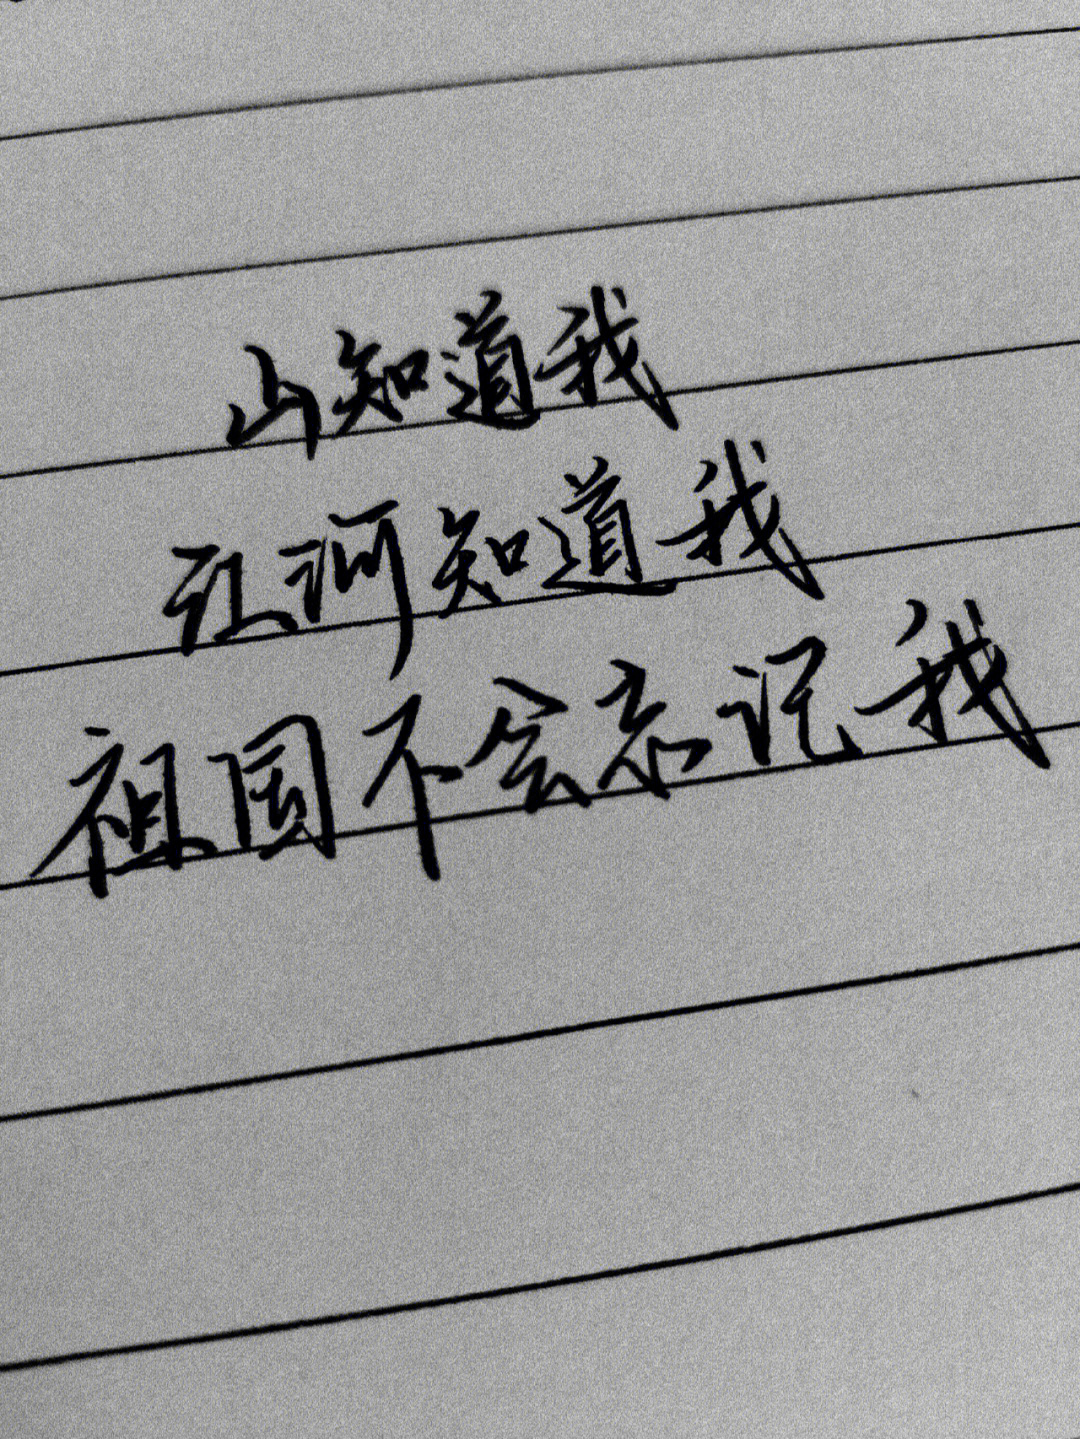 山知道我
江河知道我
祖国不会忘记我